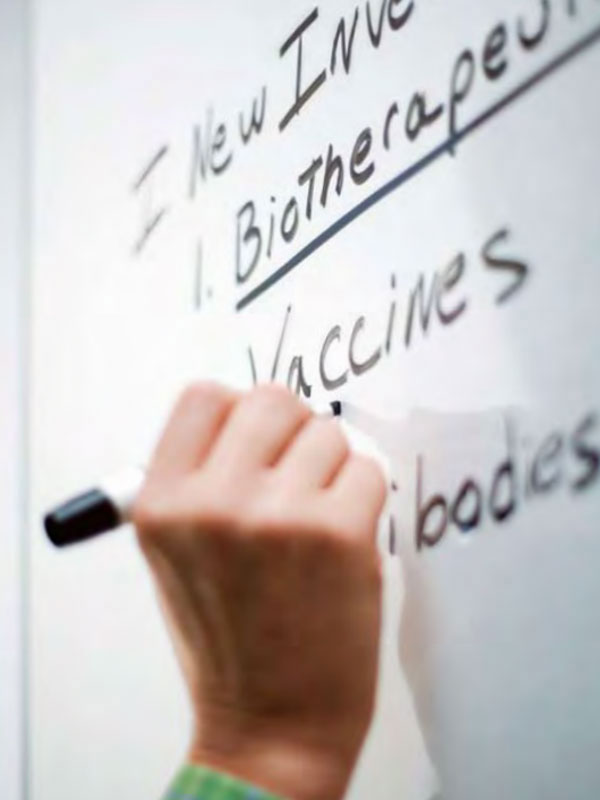 I New Inve
1. Biotherapeut
Vaccines
ibodies